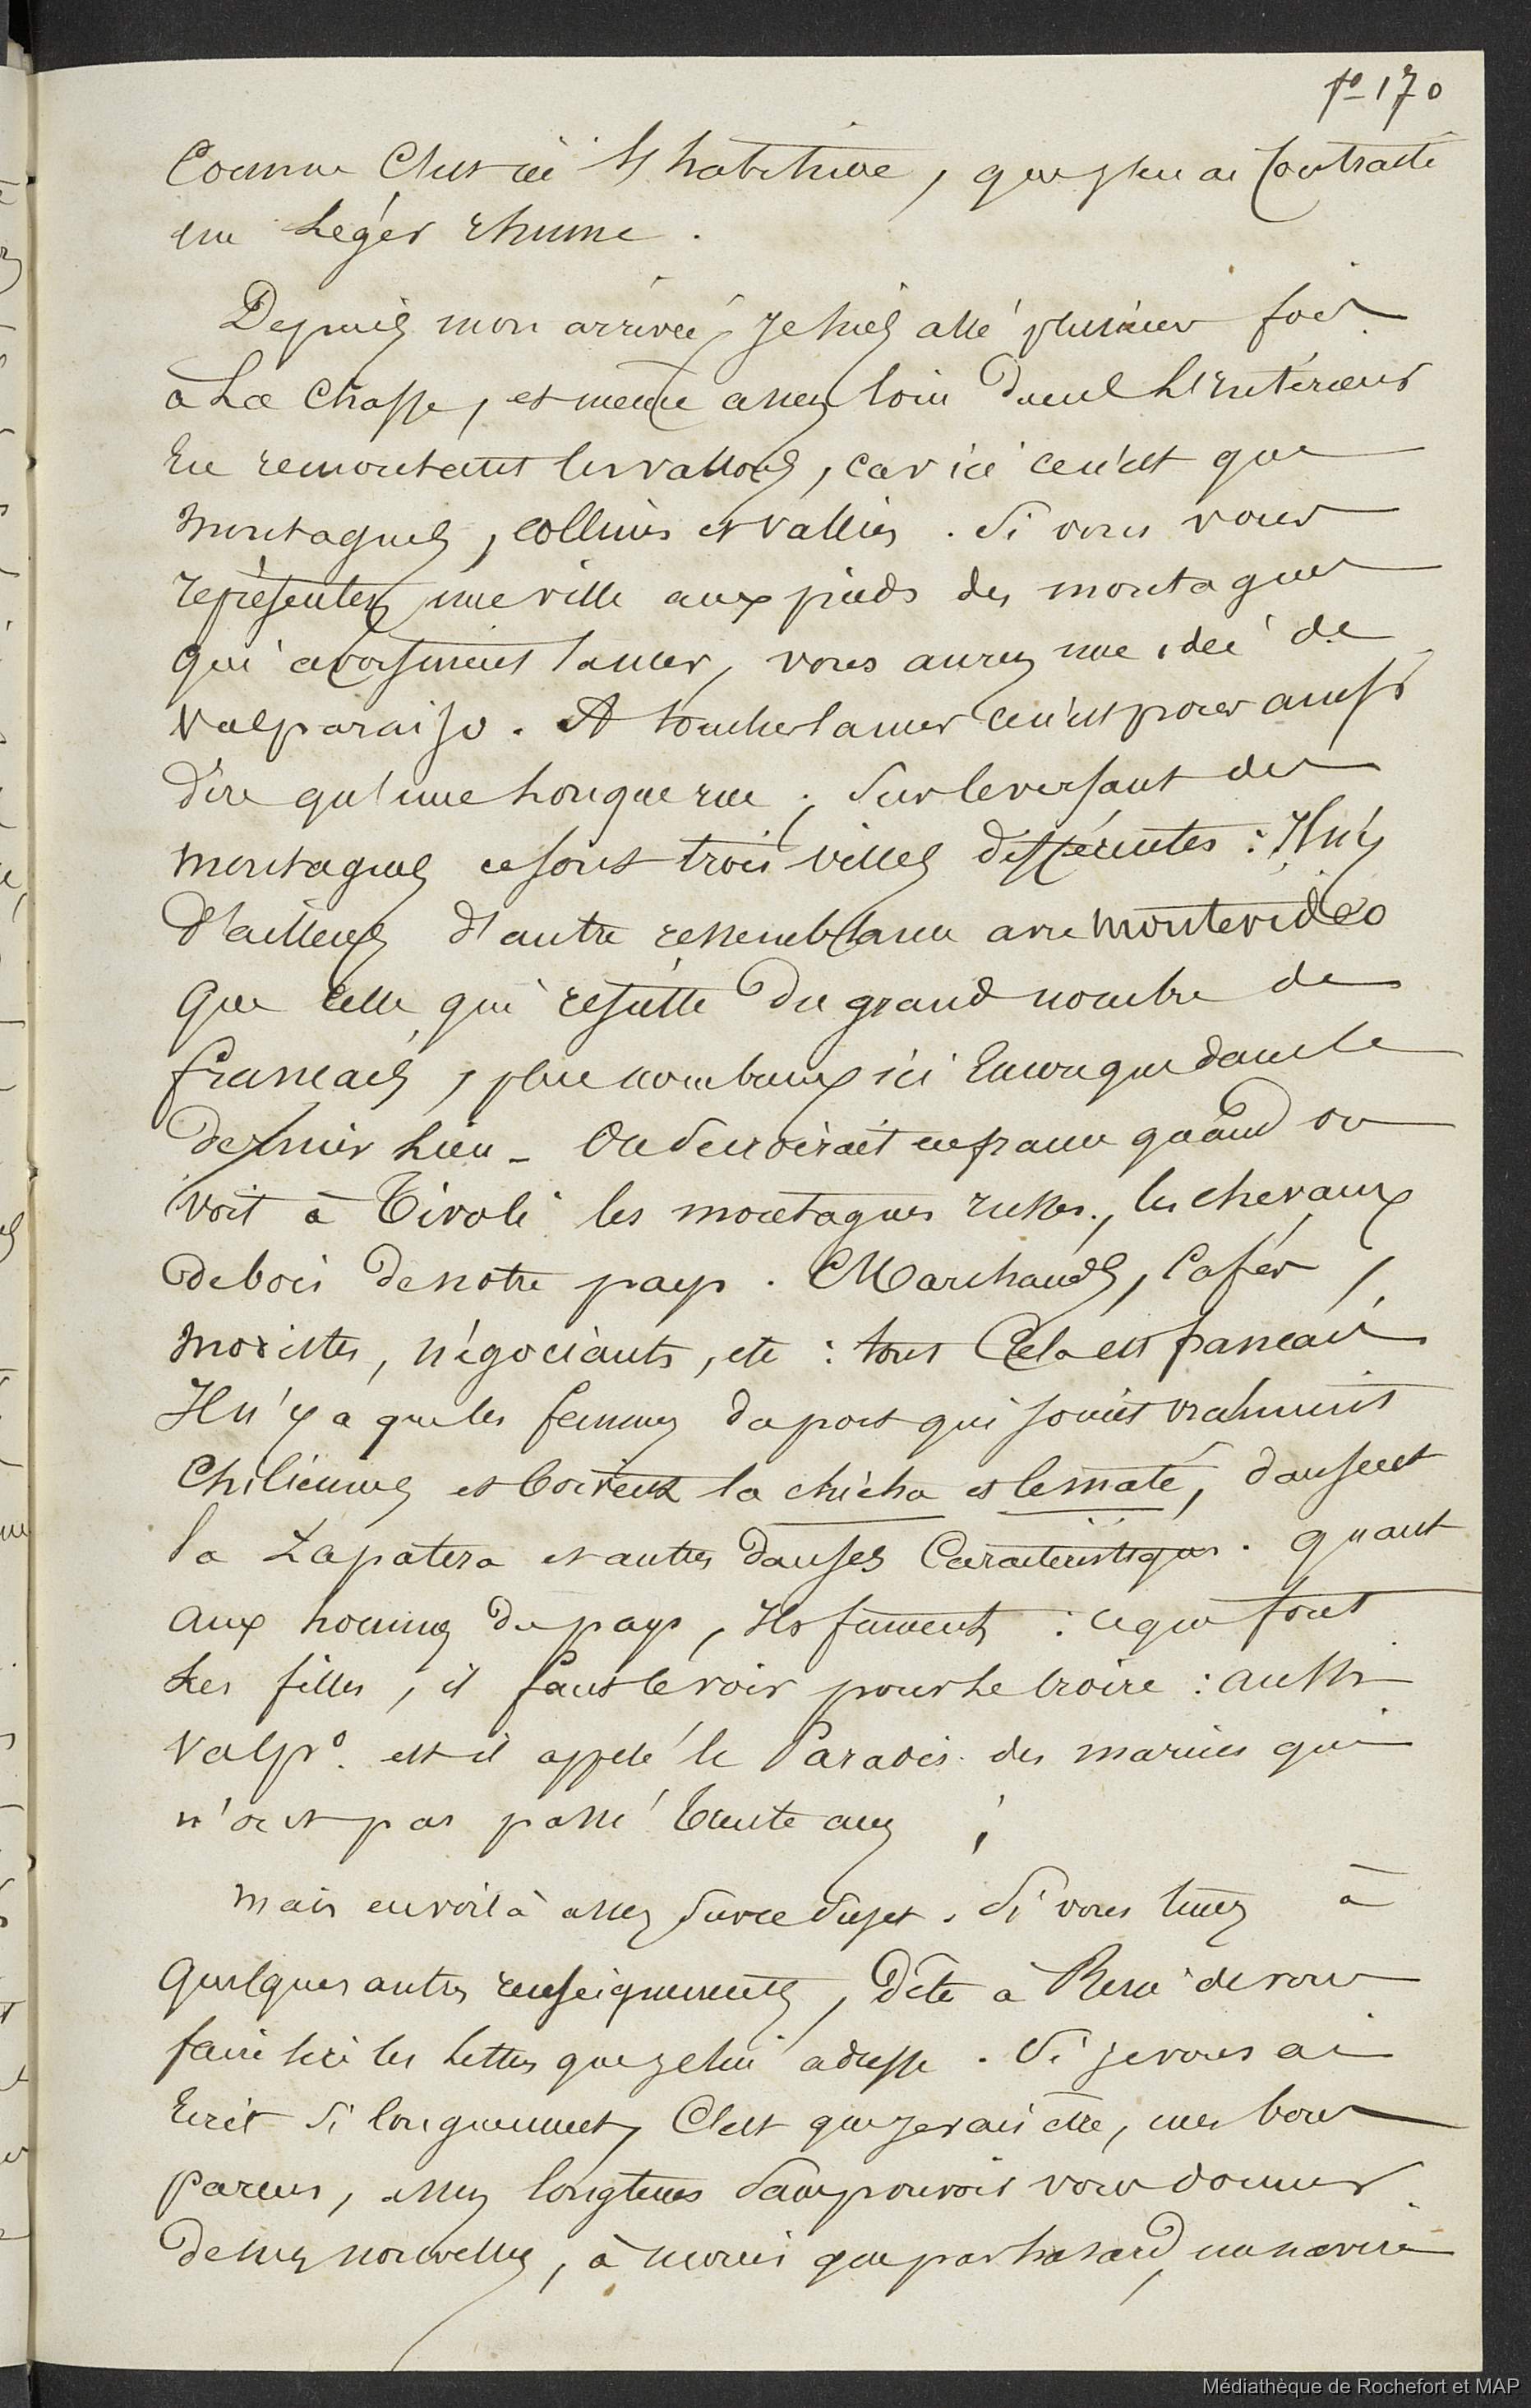 fº 170
Comme C'est ici L'habitude, que j'en ai Contracté
un Léger rhume.
Depuis mon arrivée, Je suis allé plusieurs fois
à La Chasse, et même assez loin dans L'intérieur
En remontant les vallons, car ici ce n'est que
Montagnes, collines et vallées. Si vous vous
représentez une ville aux pieds des montagnes
qui avoisinent la mer, vous aurez une idée de
Valparaiso. A toucher la mer ce n'est pour ainsi
dire qu'une Longue rue; Sur le versant des
Montagnes ce sont trois villes différentes: Il n'y
D'ailleurs d'autre ressemblance avec Montévidéo
Que celle qui résulte du grand nombre de
français, plus nombreux ici Encore que dans le
dernier Lieu - On se croirait en france quand on
Voit à Tivoli les montagnes russes, les chevaux
de bois de notre pays. Marchands, Cafés,
Modistes, négociants, etc: tout Cela est français
Il n'y a que les femmes du port qui soient vraiment
Chiliennes et boivent la chicha et le maté, dansent
la Zapatera et autres danses Caractéristiques. quant
aux hommes du pays, Ils fument: ce que font
Les filles, il faut le voir pour Le croire: aussi
Valpº. est-il appelé le Paradis des marins qui
n'ont pas passé trente ans;
Mais en voilà assez sur ce sujet. Si vous tenez à
Quelques autres renseignements, Dites à René de vous
faire lire les Lettres que je lui adresse. Si je vous ai
Ecrit si longuement, C'est que je vais être, mes bons
Parens, assez longtems sans pouvoir vous donner
de mes nouvelles, à moins que par hasard, un navire
Médiathèque de Rochefort et MAP